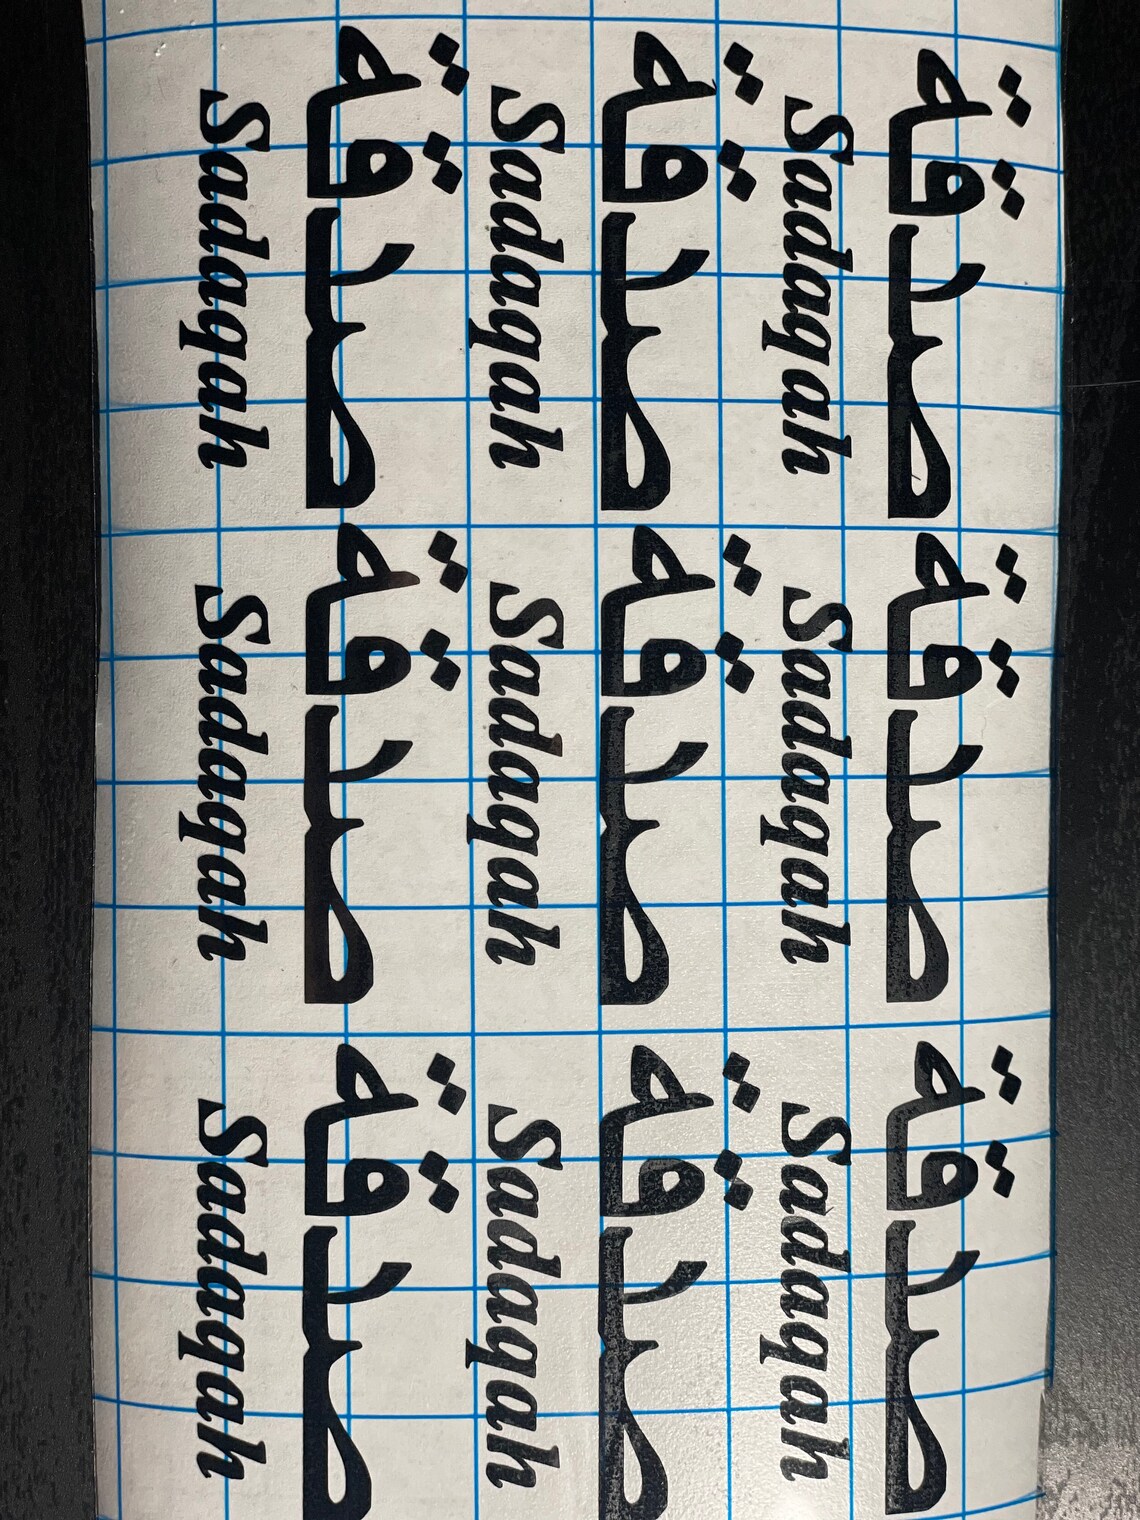 صدقة
Sadaqah
صدقة
Sadaqah
صدقة
Sadaqah
صدقة
Sadaqah
صدقة
Sadaqah
صدقة
Sadaqah
صدقة
Sadaqah
صدقة
Sadaqah
صدقة
Sadaqah